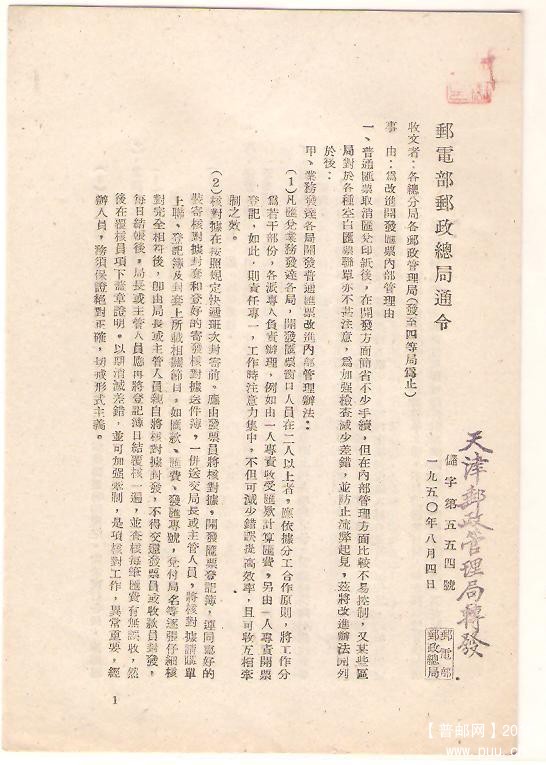 郵電部郵政總局通令
儲字第五五四號
一九五〇年八月四日
郵電部
郵政總局
天津郵政管理局轉發
收文者:各總分局各郵政管理局(發至四等局爲止)
事由:爲改進開發匯票內部管理由
一、普通匯票取消匯兌印紙後,在開發方面簡省不少手續,但在內部管理方面比較不易控制,又某些區
局對於各種空白匯票聯單亦不甚注意,爲加强檢查減少差錯,並防止流弊起見,茲將改進辦法開列
於後:
甲、業務發達各局開發普通匯票改進內部管理辦法:
(1)凡匯兌業務發達各局,開發匯票窗口人員在二人以上者,應依據分工合作原則,將工作分
爲若干部份,各派專人負責辦理,例如由一人專責收受匯欵計算匯費,另由一人專責開票
登記,如此,則責任專一,工作時注意力集中,不但可減少錯誤提高效率,且可收互相牽
制之效。
(2)核對據在按照規定快遞班次封寄前。應由發票員將核對據,開發匯票登記簿,連同寫好的
裝寄核對據封套和登好的寄發核對據送件簿,一併送交局長或主管人員,將核對據請匯單
上聯、登記簿及封套上所載相關節目,如匯款、匯費、發匯專號,兌付局名等逐張仔細核
對完全相符後,卽由局長或主管人員親自將核對據封發,不得交還發票員或收款員封發,
每日結帳後,局長或主管人員應再將登記簿日結覆核一遍,並查核每筆匯費有無誤收,然
後在覆核員項下蓋章證明。以期消減差錯,並可加强牽制,是項核對工作,異常重要,經
辦人員,務須保證絕對正確,切戒形式主義。
1
【普邮网】20
www.puu.c